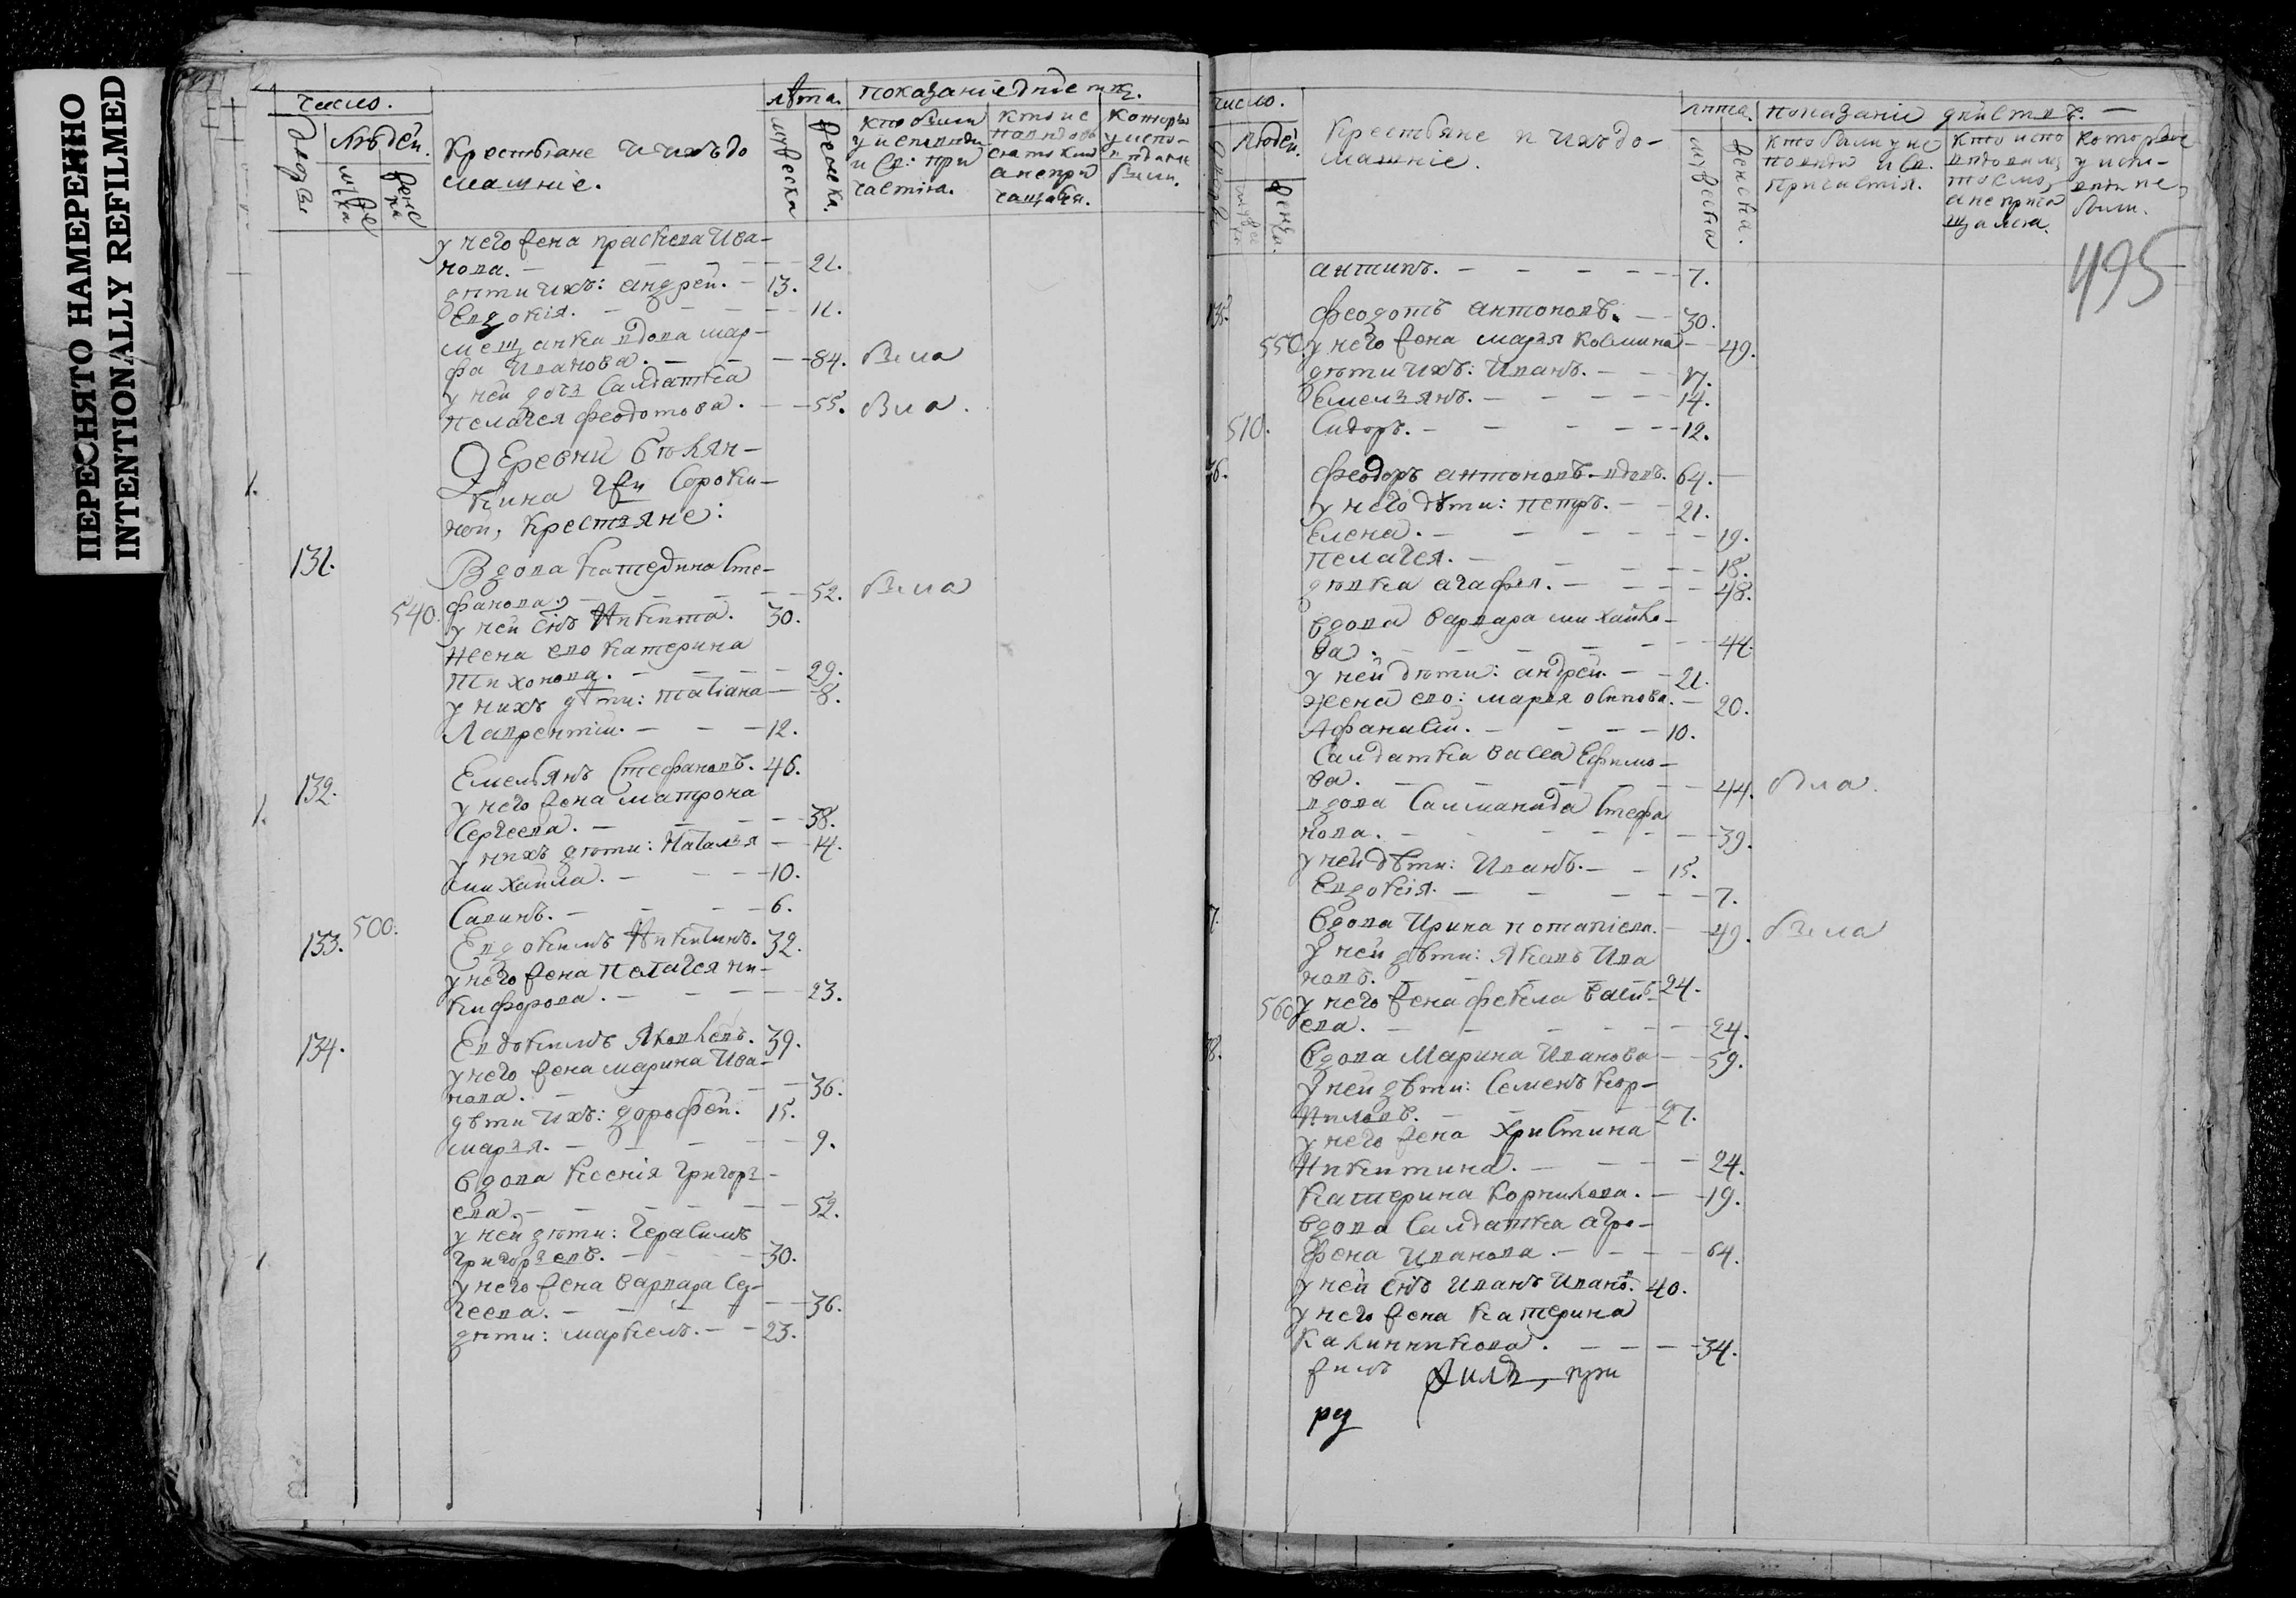 ПЕРЕСНЯТО НАМЕРЕННО
INTENTIONALLY REFILMED
число.
людей.
Крестьяне и ихъ до
машніе.
лѣта.
мужеска
женска.
показаніе дѣйств.
кто были
у исповѣди
и св: при
частія.
у него жена праскева Ива-
нова. — 21.
дѣти ихъ: андрей. — 13.
Евдокія. — 11.
мещанка вдова мар-
фа Иванова. — 84. Была
у ней дочь Салдатка
пелагея феодотова. — 55. Была.
Деревни
Кина Гжи Сороки-
ной, крестьяне:
131.
Вдова Катерина Сте-
фанова, — 52. Была
540. у ней сынъ Никита. 30.
Жена его Катерина
Тихонова. — 29.
у нихъ дѣти: татіана — 8.
Лаврентій. — 12.
132. Емельянъ Стефановъ. 46.
у него жена матрона
Сергеева. — 38.
у нихъ дѣти: Наталья — 14.
михаила. — 10.
Савинъ. — 6.
500.
133. Евдокимъ Никитинъ. 32.
у него жена пелагея ни-
кифорова. — 23.
134. Евдокимъ Яковлевъ. 39.
у него жена марина Ива-
нова. — 36.
дѣти ихъ: дорофей. 15.
марья. — 9.
вдова Ксенія григорь-
ева, — 52.
у ней дѣти: Герасимъ
григорьевъ. — 30.
у него жена варвара Сер-
геева. — 36.
дѣти: маркелъ. — 23.
число.
людей.
женска.
Крестьяне и ихъ до-
машніе.
лѣта.
мужеска
женска.
показаніе дѣйствъ. —
кто были у ис
повѣди и св.
причастія.
кто испо
вѣдовались
токмо,
а не прича
щались.
которые
у испо-
вѣди не
были.
495
антипъ. — 7.
135. феодотъ антоновъ. — 30.
550. у него жена марья козмина — 49.
дѣти ихъ: Иванъ. — 17.
Емельянъ. — 14.
510. Сидоръ. — 12.
36. феодоръ антоновъ вдовъ. 64. —
у него дѣти: петръ. — 21.
Елена. — 19.
пелагея. — 18.
дѣвка агафья. — 48.
вдова варвара михайло-
ва. — 44.
у ней дѣти: андрей. — 21.
жена его: марья осипова. — 20.
Афанасій. — 10.
Салдатка васса Ефимо-
ва. — 44. Была.
вдова Саломанида Стефа
нова. — 39.
у ней дѣти: Иванъ. — 15.
Евдокія. — 7.
7. вдова Ирина потапіева. — 49. Была
у ней дѣти: Яковъ Ива
новъ. — 24.
560. у него жена фекла васил-
ева. — 24.
8. вдова Марина Иванова — 59.
у ней дѣти: Семенъ Кор-
ниловъ. — 27.
у него жена христина
Никитина. — 24.
Катерина Корнилова. — 19.
вдова Салдатка агра-
фена Иванова. — 64.
у ней сынъ Иванъ Иванв. 40.
у него жена Катерина
Калинникова. — 34.